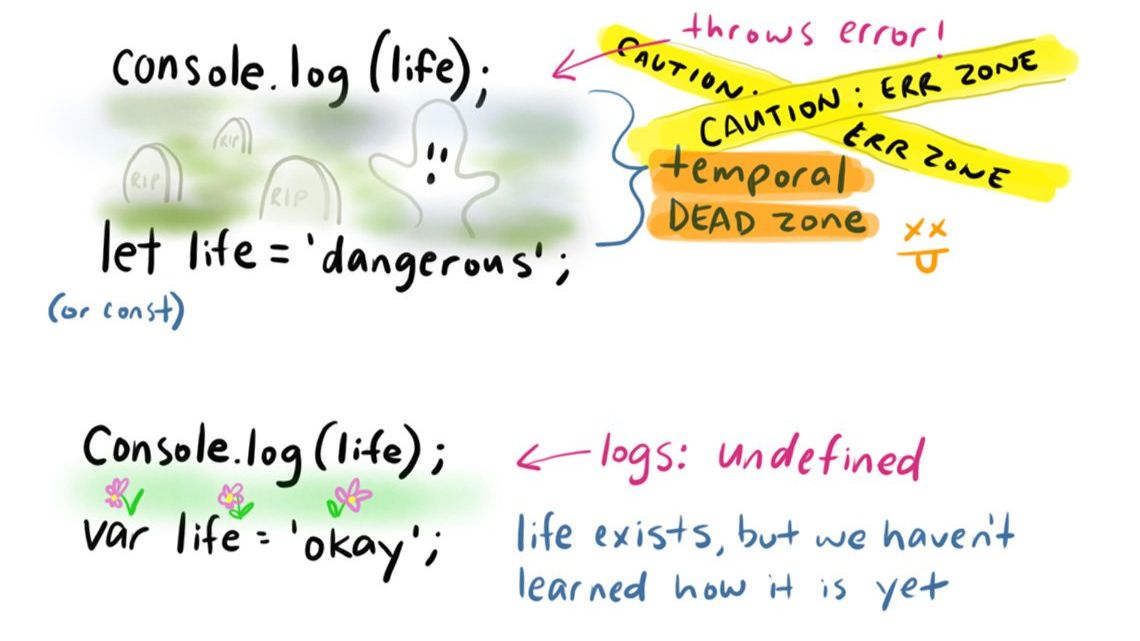 throws error!
console.log (life);
CAUTION:
ERR ZONE
CAUTION: ERR ZONE
RIP
RIP
RIP
temporal
DEAD zone
let life = 'dangerous';
(or const)
Console.log (life);
logs: undefined
var life = 'okay';
life exists, but we haven't
learned how it is yet